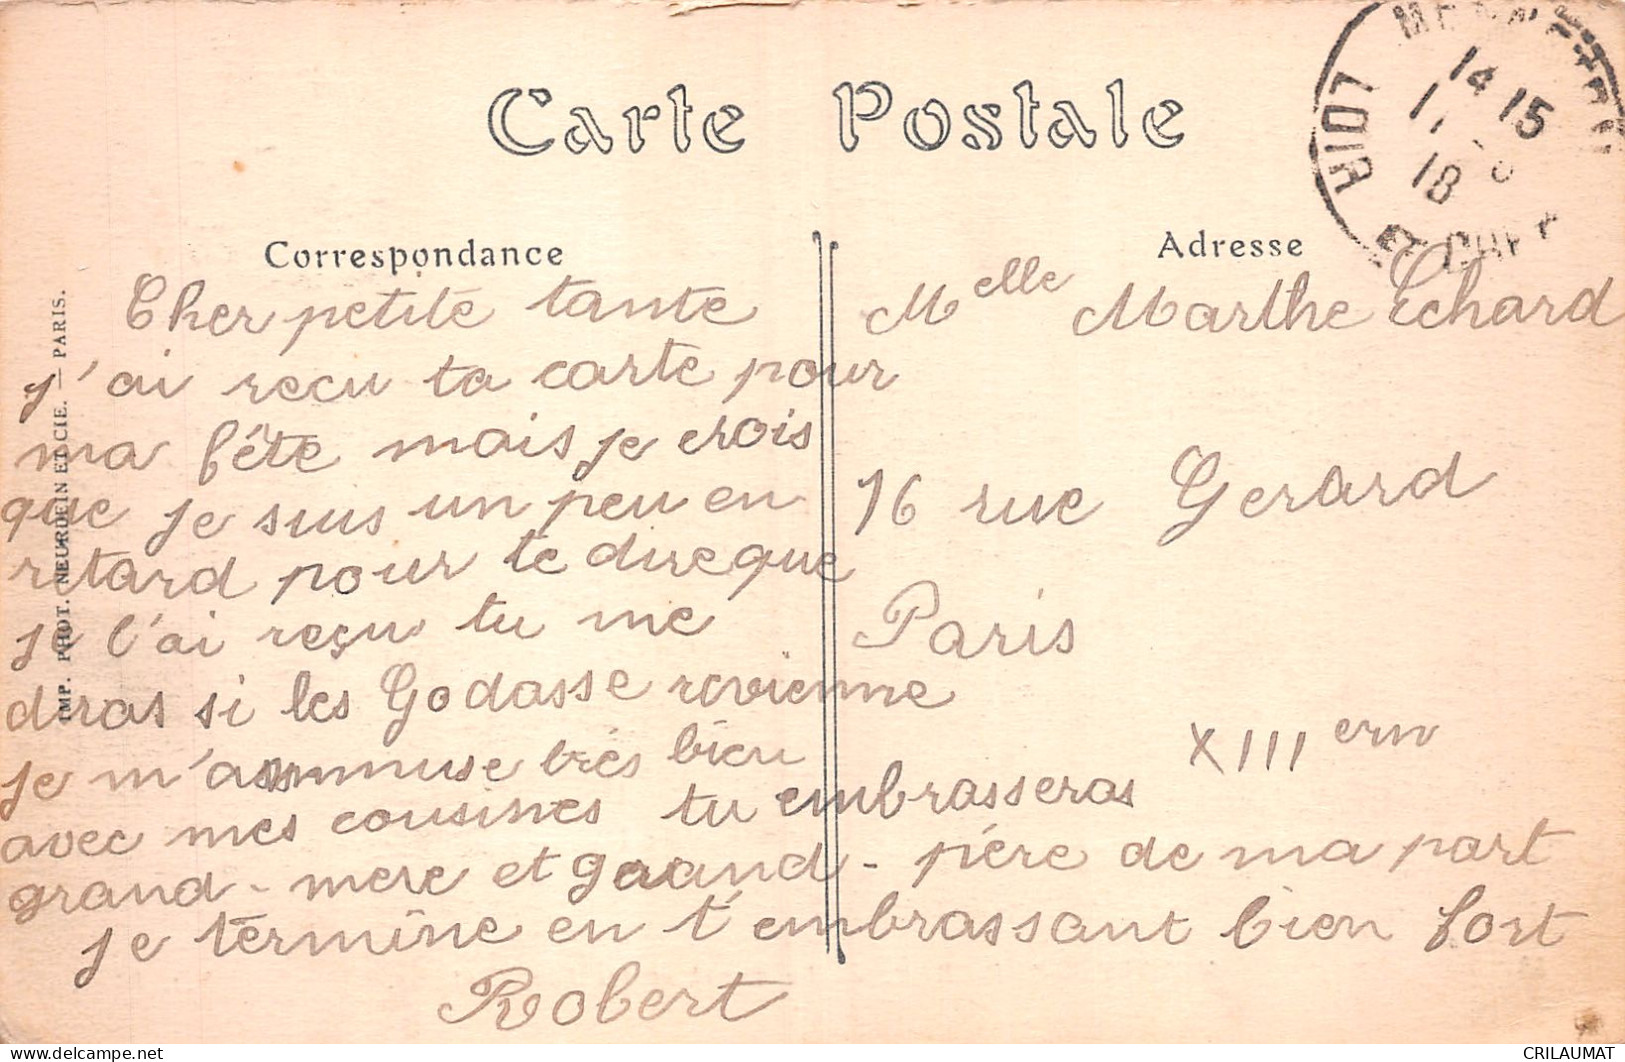 Carte Postale
Correspondance
Cher petite tante
j'ai recu ta carte pour
ma fête mais je crois
que je suis un peu en
retard pour te dire que
je l'ai reçu tu me
diras si les Godasse revienne
je m'amuse très bien
avec mes cousines tu embrasseras
grand-mere et grand-père de ma part
je termine en t'embrassant bien fort
Robert
Adresse
Melle Marthe Echard
16 rue Gerard
Paris
XIII
IMP. PHOT. NEURDEIN ET CIE. — PARIS.
LOIR ET CHER
14 15
18
CRILAUMAT